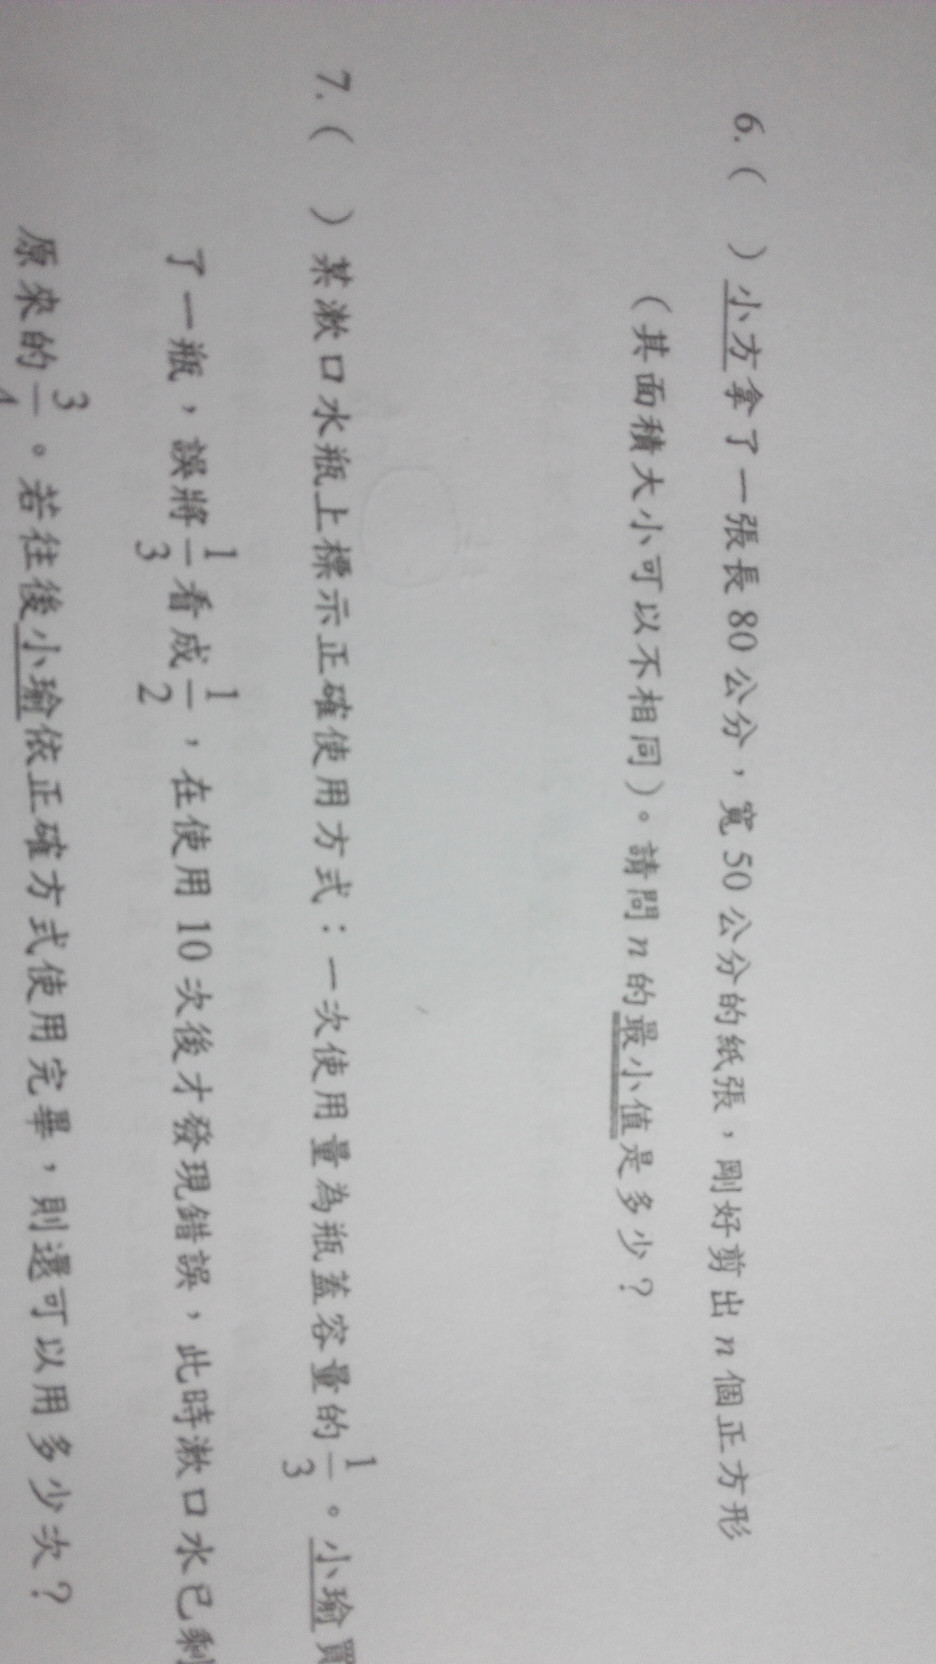 6.(　)小方拿了一張長80公分，寬50公分的紙張，剛好剪出n個正方形
（其面積大小可以不相同）。請問n的最小值是多少？
7.(　)某漱口水瓶上標示正確使用方式：一次使用量為瓶蓋容量的1/3。小瑜買
了一瓶，誤將1/3看成1/2，在使用10次後才發現錯誤，此時漱口水已剩
原來的3/4。若往後小瑜依正確方式使用完畢，則還可以用多少次？